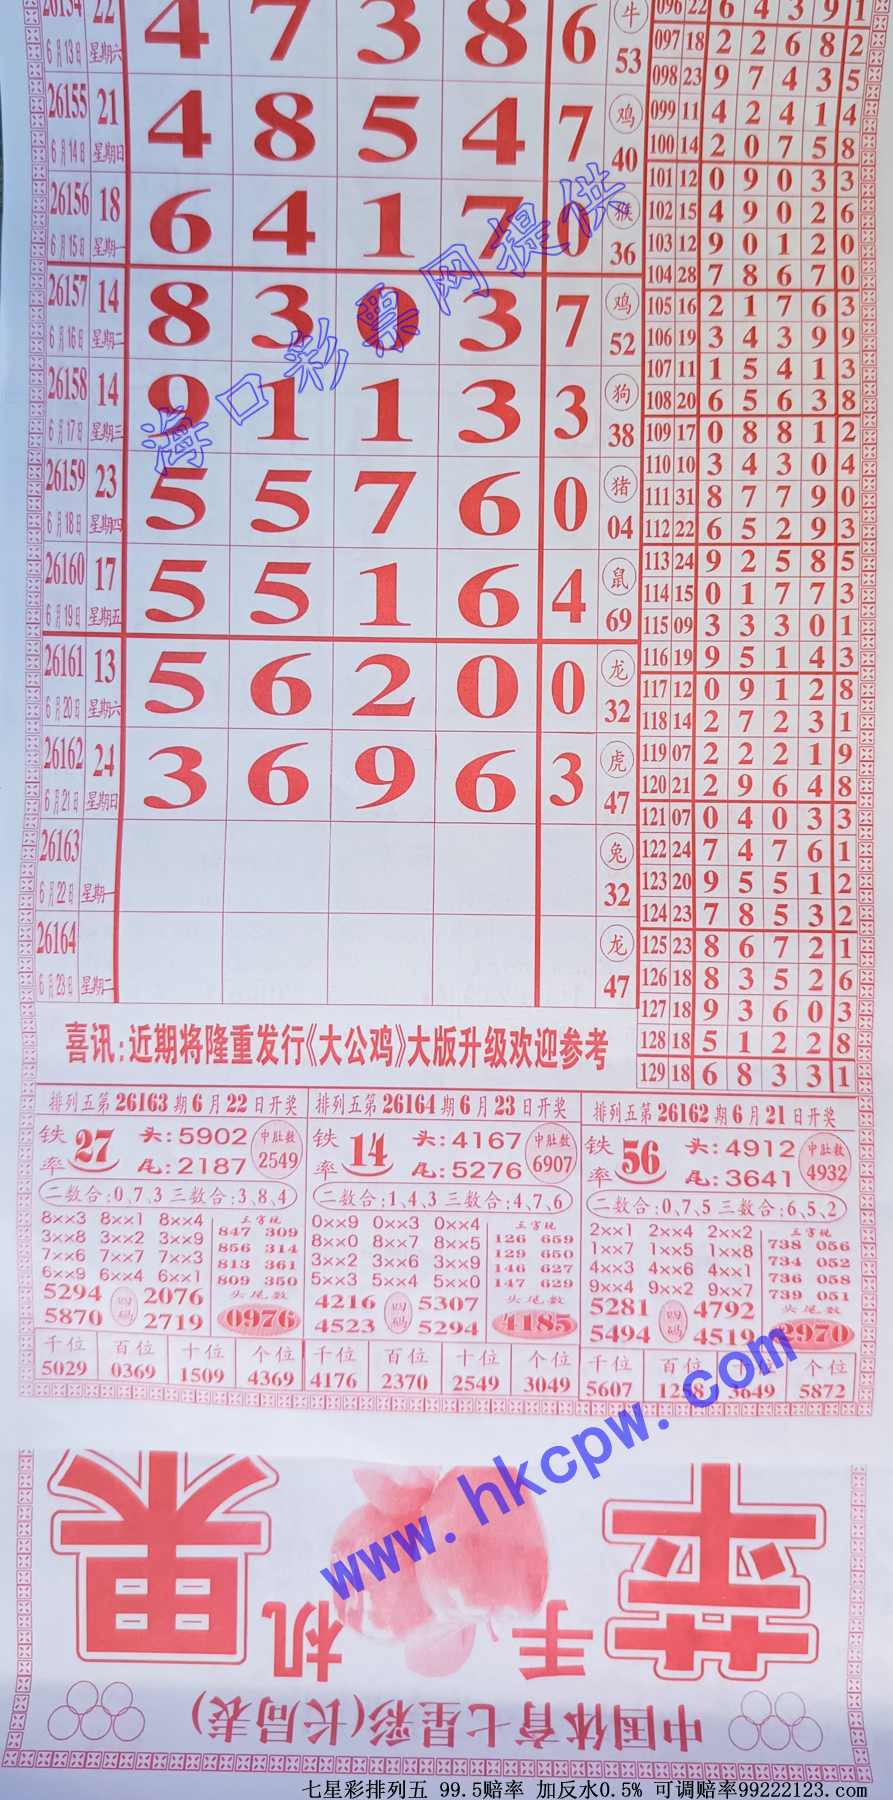 26154 22 4 7 3 8 6 牛
6月13日 星期六 53
26155 21 4 8 5 4 7 鸡
6月14日 星期日 40
26156 18 6 4 1 7 0 猴
6月15日 星期一 36
26157 14 8 3 3 7 鸡
6月16日 星期二 52
26158 14 9 1 1 3 3 狗
6月17日 星期三 38
26159 23 5 5 7 6 0 猪
6月18日 星期四 04
26160 17 5 5 1 6 4 鼠
6月19日 星期五 69
26161 13 5 6 2 0 0 龙
6月20日 星期六 32
26162 24 3 6 9 6 3 虎
6月21日 星期日 47
26163 兔
6月22日 星期一 32
26164 龙
6月23日 星期二 47
096 22 6 4 3 9 1
097 18 2 2 6 8 2
098 23 9 7 4 3 5
099 11 4 2 4 1 4
100 14 2 0 7 5 8
101 12 0 9 0 3 3
102 15 4 9 0 2 6
103 12 9 0 1 2 0
104 28 7 8 6 7 0
105 16 2 1 7 6 3
106 19 3 4 3 9 9
107 11 1 5 4 1 3
108 20 6 5 6 3 8
109 17 0 8 8 1 2
110 10 3 4 3 0 4
111 31 8 7 7 9 0
112 22 6 5 2 9 3
113 24 9 2 5 8 5
114 15 0 1 7 7 3
115 09 3 3 3 0 1
116 19 9 5 1 4 3
117 12 0 9 1 2 8
118 14 2 7 2 3 1
119 07 2 2 2 1 9
120 21 2 9 6 4 8
121 07 0 4 0 3 3
122 24 7 4 7 6 1
123 20 9 5 5 1 2
124 23 7 8 5 3 2
125 23 8 6 7 2 1
126 18 8 3 5 2 6
127 18 9 3 6 0 3
128 18 5 1 2 2 8
129 18 6 8 3 3 1
海口彩票网提供
喜讯:近期将隆重发行《大公鸡》大版升级欢迎参考
排列五第26163期6月22日开奖
铁率 27 头:5902 中肚数
尾:2187 2549
二数合:0,7,3 三数合:3,8,4
8××3 8××1 8××4 三字现
3××8 3××2 3××9 847 309
7××6 7××7 7××3 856 314
6××9 6××4 6××1 813 361
809 350
5294 四码 2076 头尾数
5870 2719 0976
千位 百位 十位 个位
5029 0369 1509 4369
排列五第26164期6月23日开奖
铁率 14 头:4167 中肚数
尾:5276 6907
二数合:1,4,3 三数合:4,7,6
0××9 0××3 0××4 三字现
8××0 8××7 8××5 126 659
3××2 3××6 3××9 129 650
5××3 5××4 5××0 146 627
147 629
4216 四码 5307 头尾数
4523 5294 4185
千位 百位 十位 个位
4176 2370 2549 3049
排列五第26162期6月21日开奖
铁率 56 头:4912 中肚数
尾:3641 4932
二数合:0,7,5 三数合:6,5,2
2××1 2××4 2××2 三字现
1××7 1××5 1××8 738 056
4××3 4××6 4××1 734 052
9××4 9××2 9××7 736 058
739 051
5281 四码 4792 头尾数
5494 4519 2970
千位 百位 十位 个位
5607 1258 3649 5872
www.hkcpw.com
苹果
手机
中国体育七星彩(长局表)
七星彩排列五 99.5赔率 加反水0.5% 可调赔率99222123.com